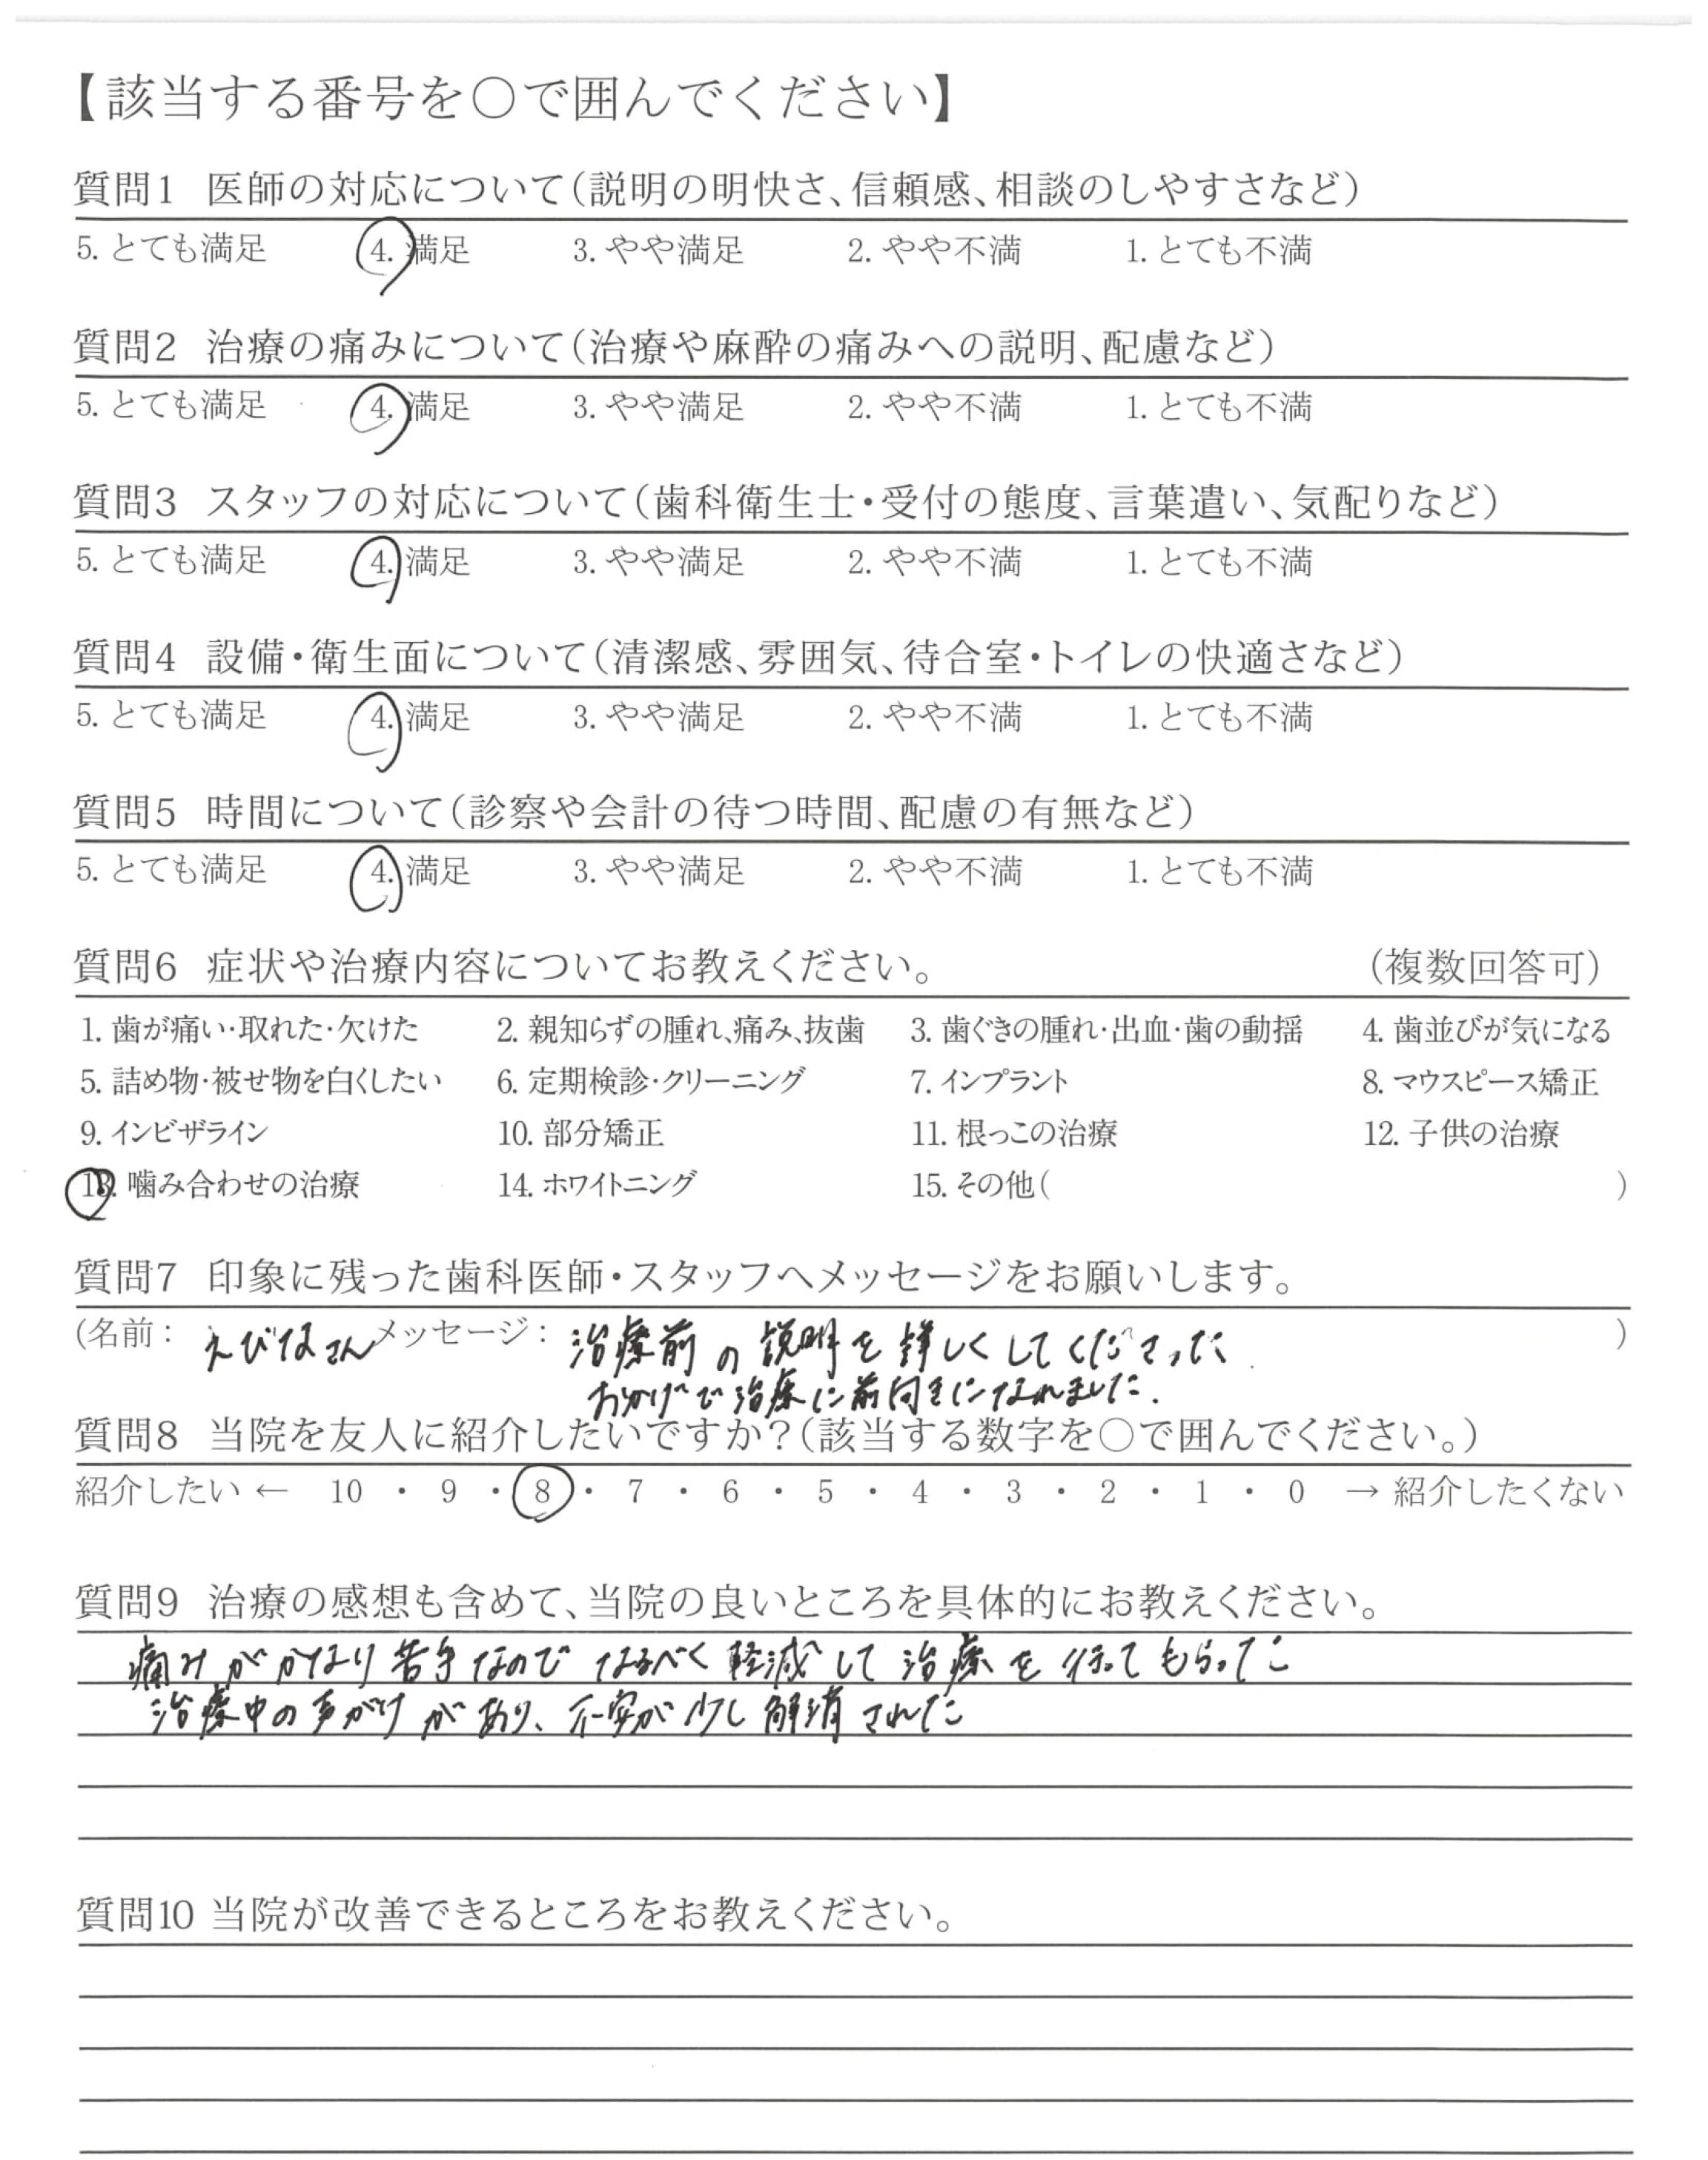 【該当する番号を○で囲んでください】
質問1 医師の対応について(説明の明快さ、信頼感、相談のしやすさなど)
5. とても満足 4. 満足 3. やや満足 2. やや不満 1. とても不満
質問2 治療の痛みについて(治療や麻酔の痛みへの説明、配慮など)
5. とても満足 4. 満足 3. やや満足 2. やや不満 1. とても不満
質問3 スタッフの対応について(歯科衛生士・受付の態度、言葉遣い、気配りなど)
5. とても満足 4. 満足 3. やや満足 2. やや不満 1. とても不満
質問4 設備・衛生面について(清潔感、雰囲気、待合室・トイレの快適さなど)
5. とても満足 4. 満足 3. やや満足 2. やや不満 1. とても不満
質問5 時間について(診察や会計の待つ時間、配慮の有無など)
5. とても満足 4. 満足 3. やや満足 2. やや不満 1. とても不満
質問6 症状や治療内容についてお教えください。 (複数回答可)
1. 歯が痛い・取れた・欠けた 2. 親知らずの腫れ、痛み、抜歯 3. 歯ぐきの腫れ・出血・歯の動揺 4. 歯並びが気になる
5. 詰め物・被せ物を白くしたい 6. 定期検診・クリーニング 7. インプラント 8. マウスピース矯正
9. インビザライン 10. 部分矯正 11. 根っこの治療 12. 子供の治療
13. 噛み合わせの治療 14. ホワイトニング 15. その他( )
質問7 印象に残った歯科医師・スタッフへメッセージをお願いします。
(名前： えびなさん メッセージ： 治療前の説明を詳しくしてくださった )
おかげで治療に前向きになれました.
質問8 当院を友人に紹介したいですか？(該当する数字を○で囲んでください。)
紹介したい ← 10 ・ 9 ・ 8 ・ 7 ・ 6 ・ 5 ・ 4 ・ 3 ・ 2 ・ 1 ・ 0 → 紹介したくない
質問9 治療の感想も含めて、当院の良いところを具体的にお教えください。
痛みがかなり苦手なのでなるべく軽減して治療を行ってもらった
治療中の声がけがあり、不安が少し解消された
質問10 当院が改善できるところをお教えください。